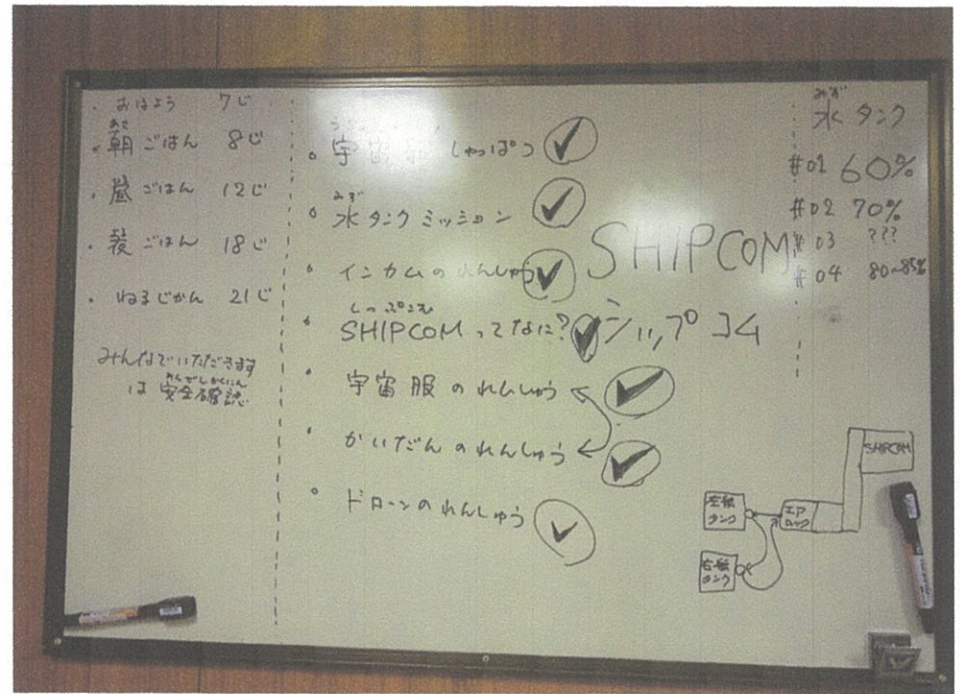 ・おはよう 7じ
あさ
・朝ごはん 8じ
・昼ごはん 12じ
・夜ごはん 18じ
・ねるじかん 21じ
みんなでいただきます
あんぜんかくにん
は安全確認
宇宙 しゅっぱつ
みず
水タンクミッション
インカムのれんしゅう
しっぷこむ
SHIPCOMってなに?
宇宙服のれんしゅう
かいだんのれんしゅう
ドローンのれんしゅう
SHIPCOM
シップコム
みず
水タンク
#01 60%
#02 70%
#03 ???
#04 80~85%
SHIPCOM
エア
ロック
左舷
タンク
右舷
タンク